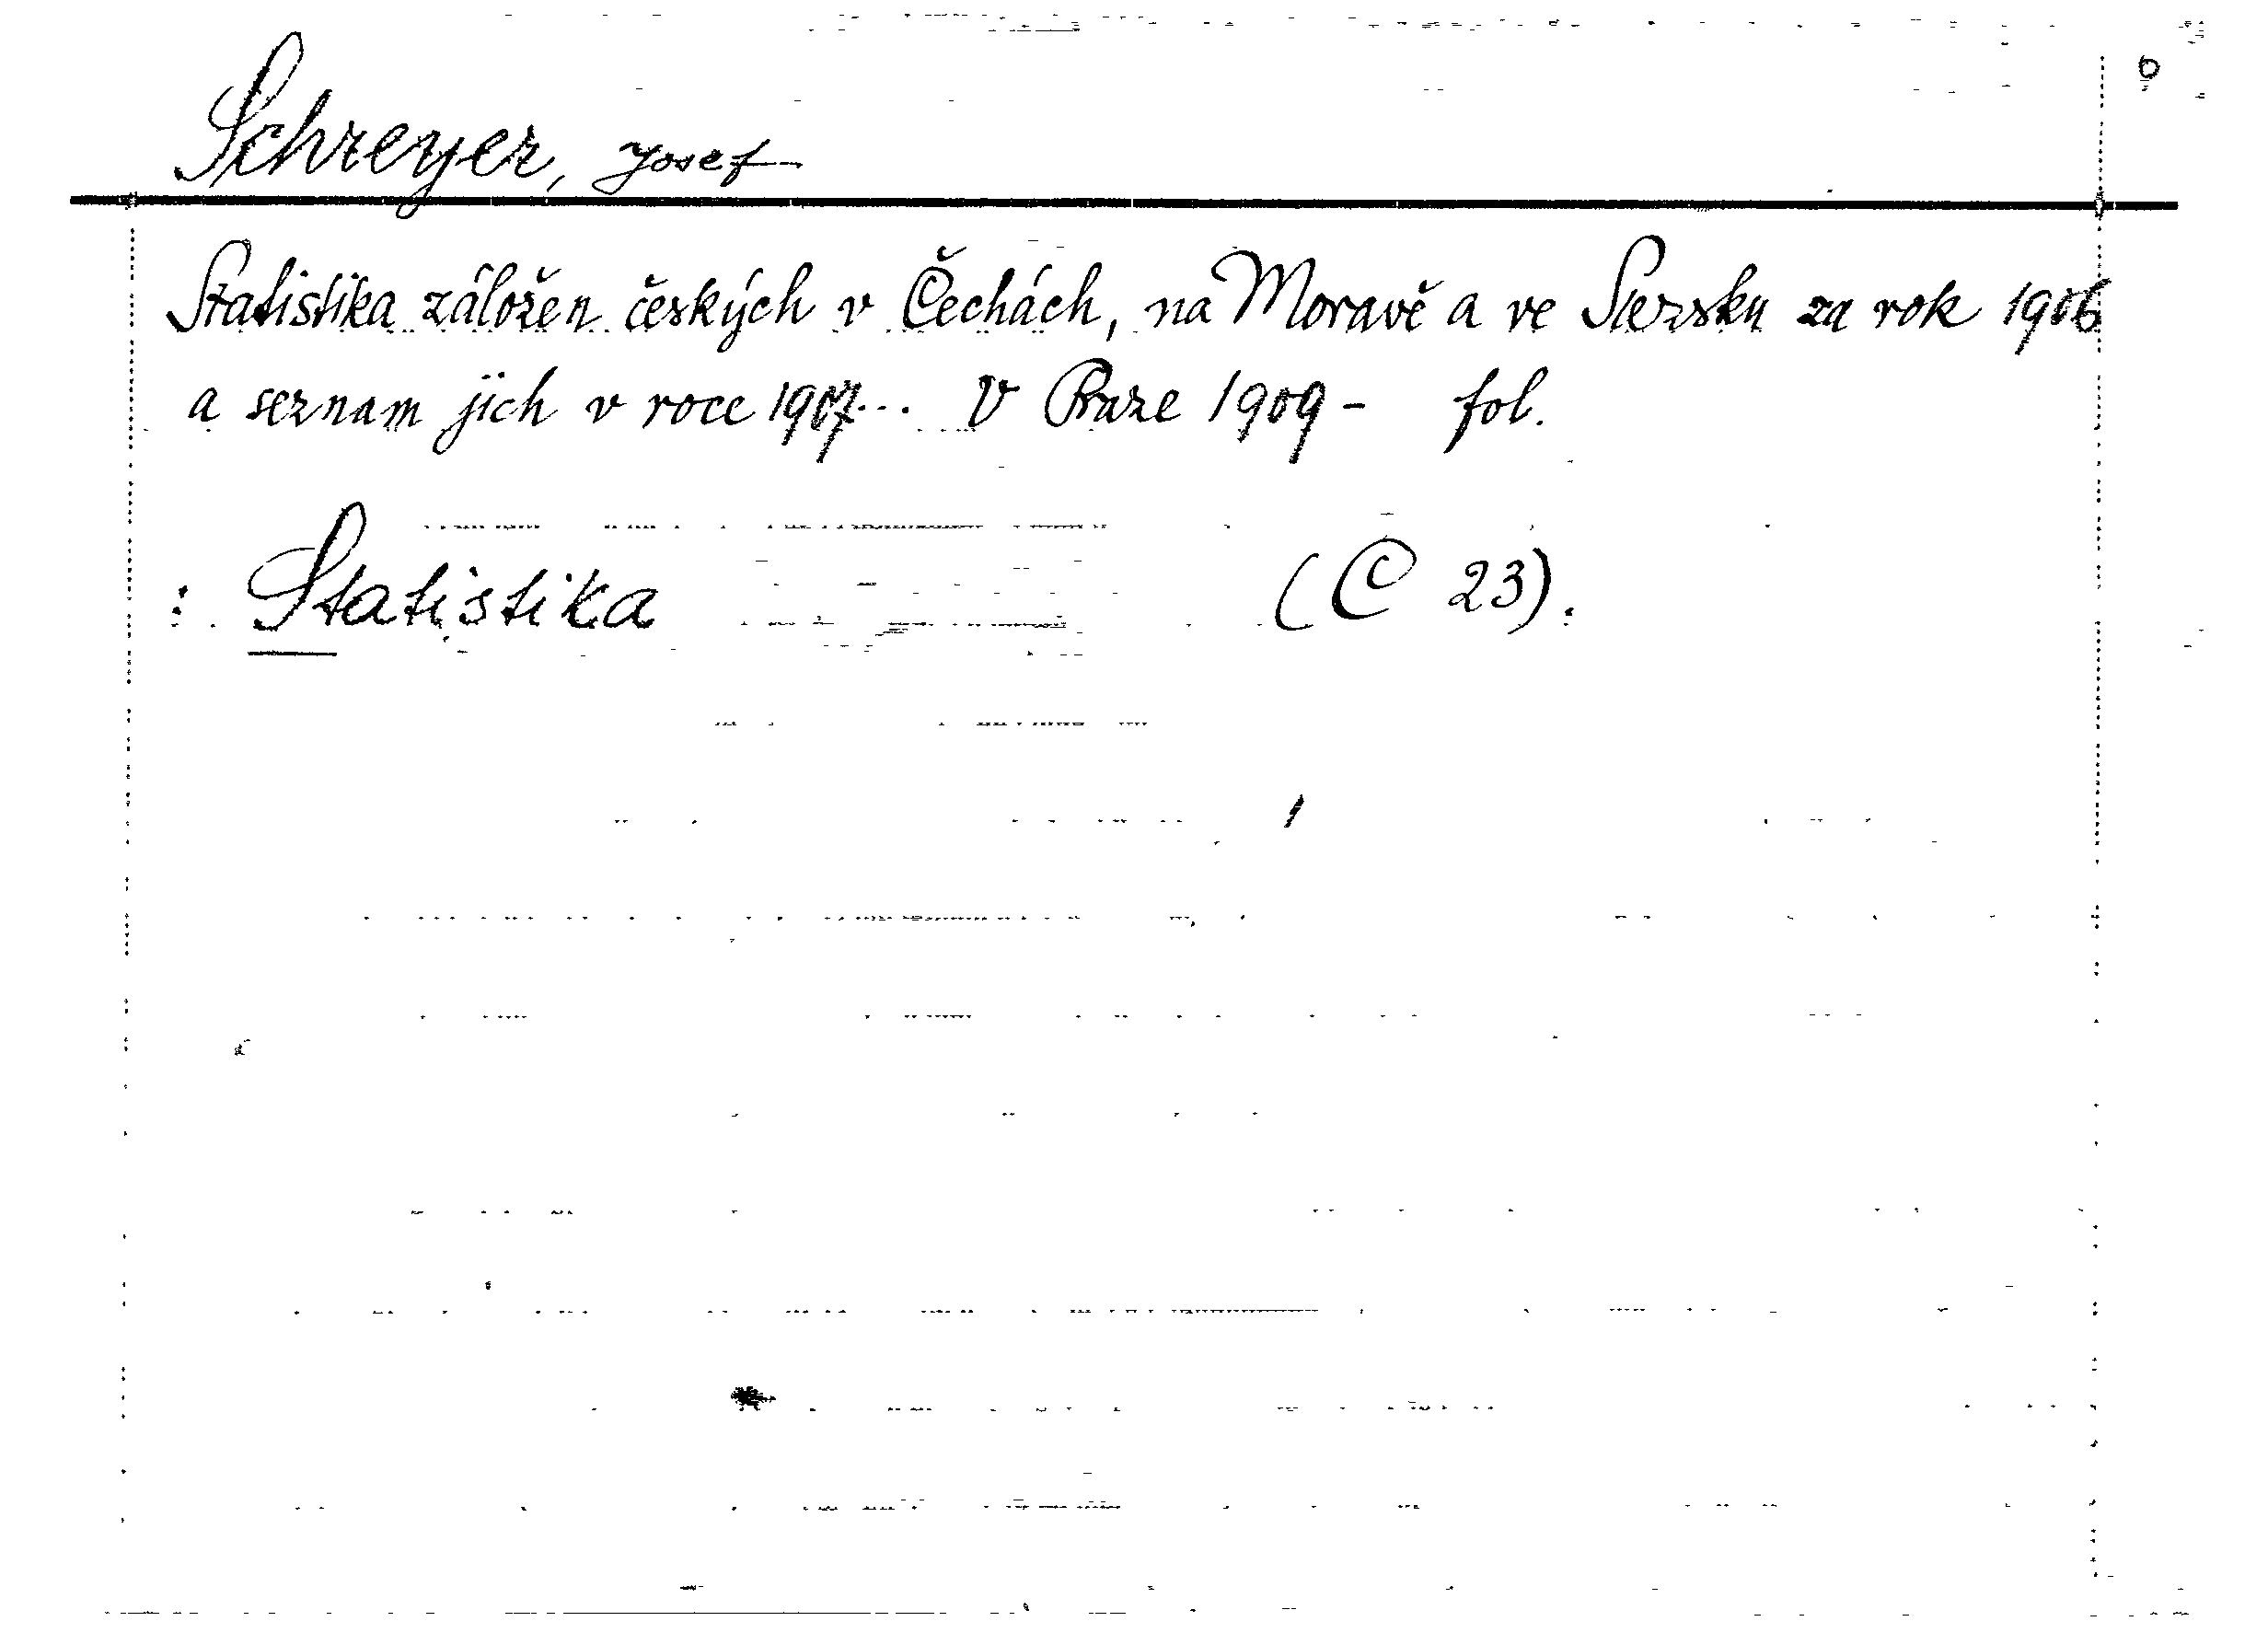 Schreyer, Josef
Statistika záložen českých v Čechách, na Moravě a ve Slezsku za rok 1906
a seznam jich v roce 1907... V Praze 1909 - fol.
: Statistika (C 23).